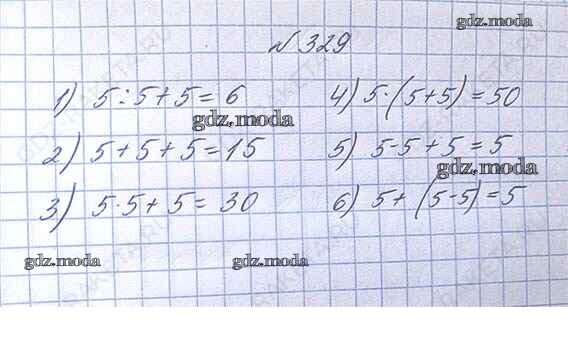 gdz.moda
№329
1) 5:5+5=6
4) 5·(5+5)=50
gdz.moda
2) 5+5+5=15
5) 5-5+5=5
gdz.moda
3) 5·5+5=30
6) 5+(5-5)=5
gdz.moda
gdz.moda